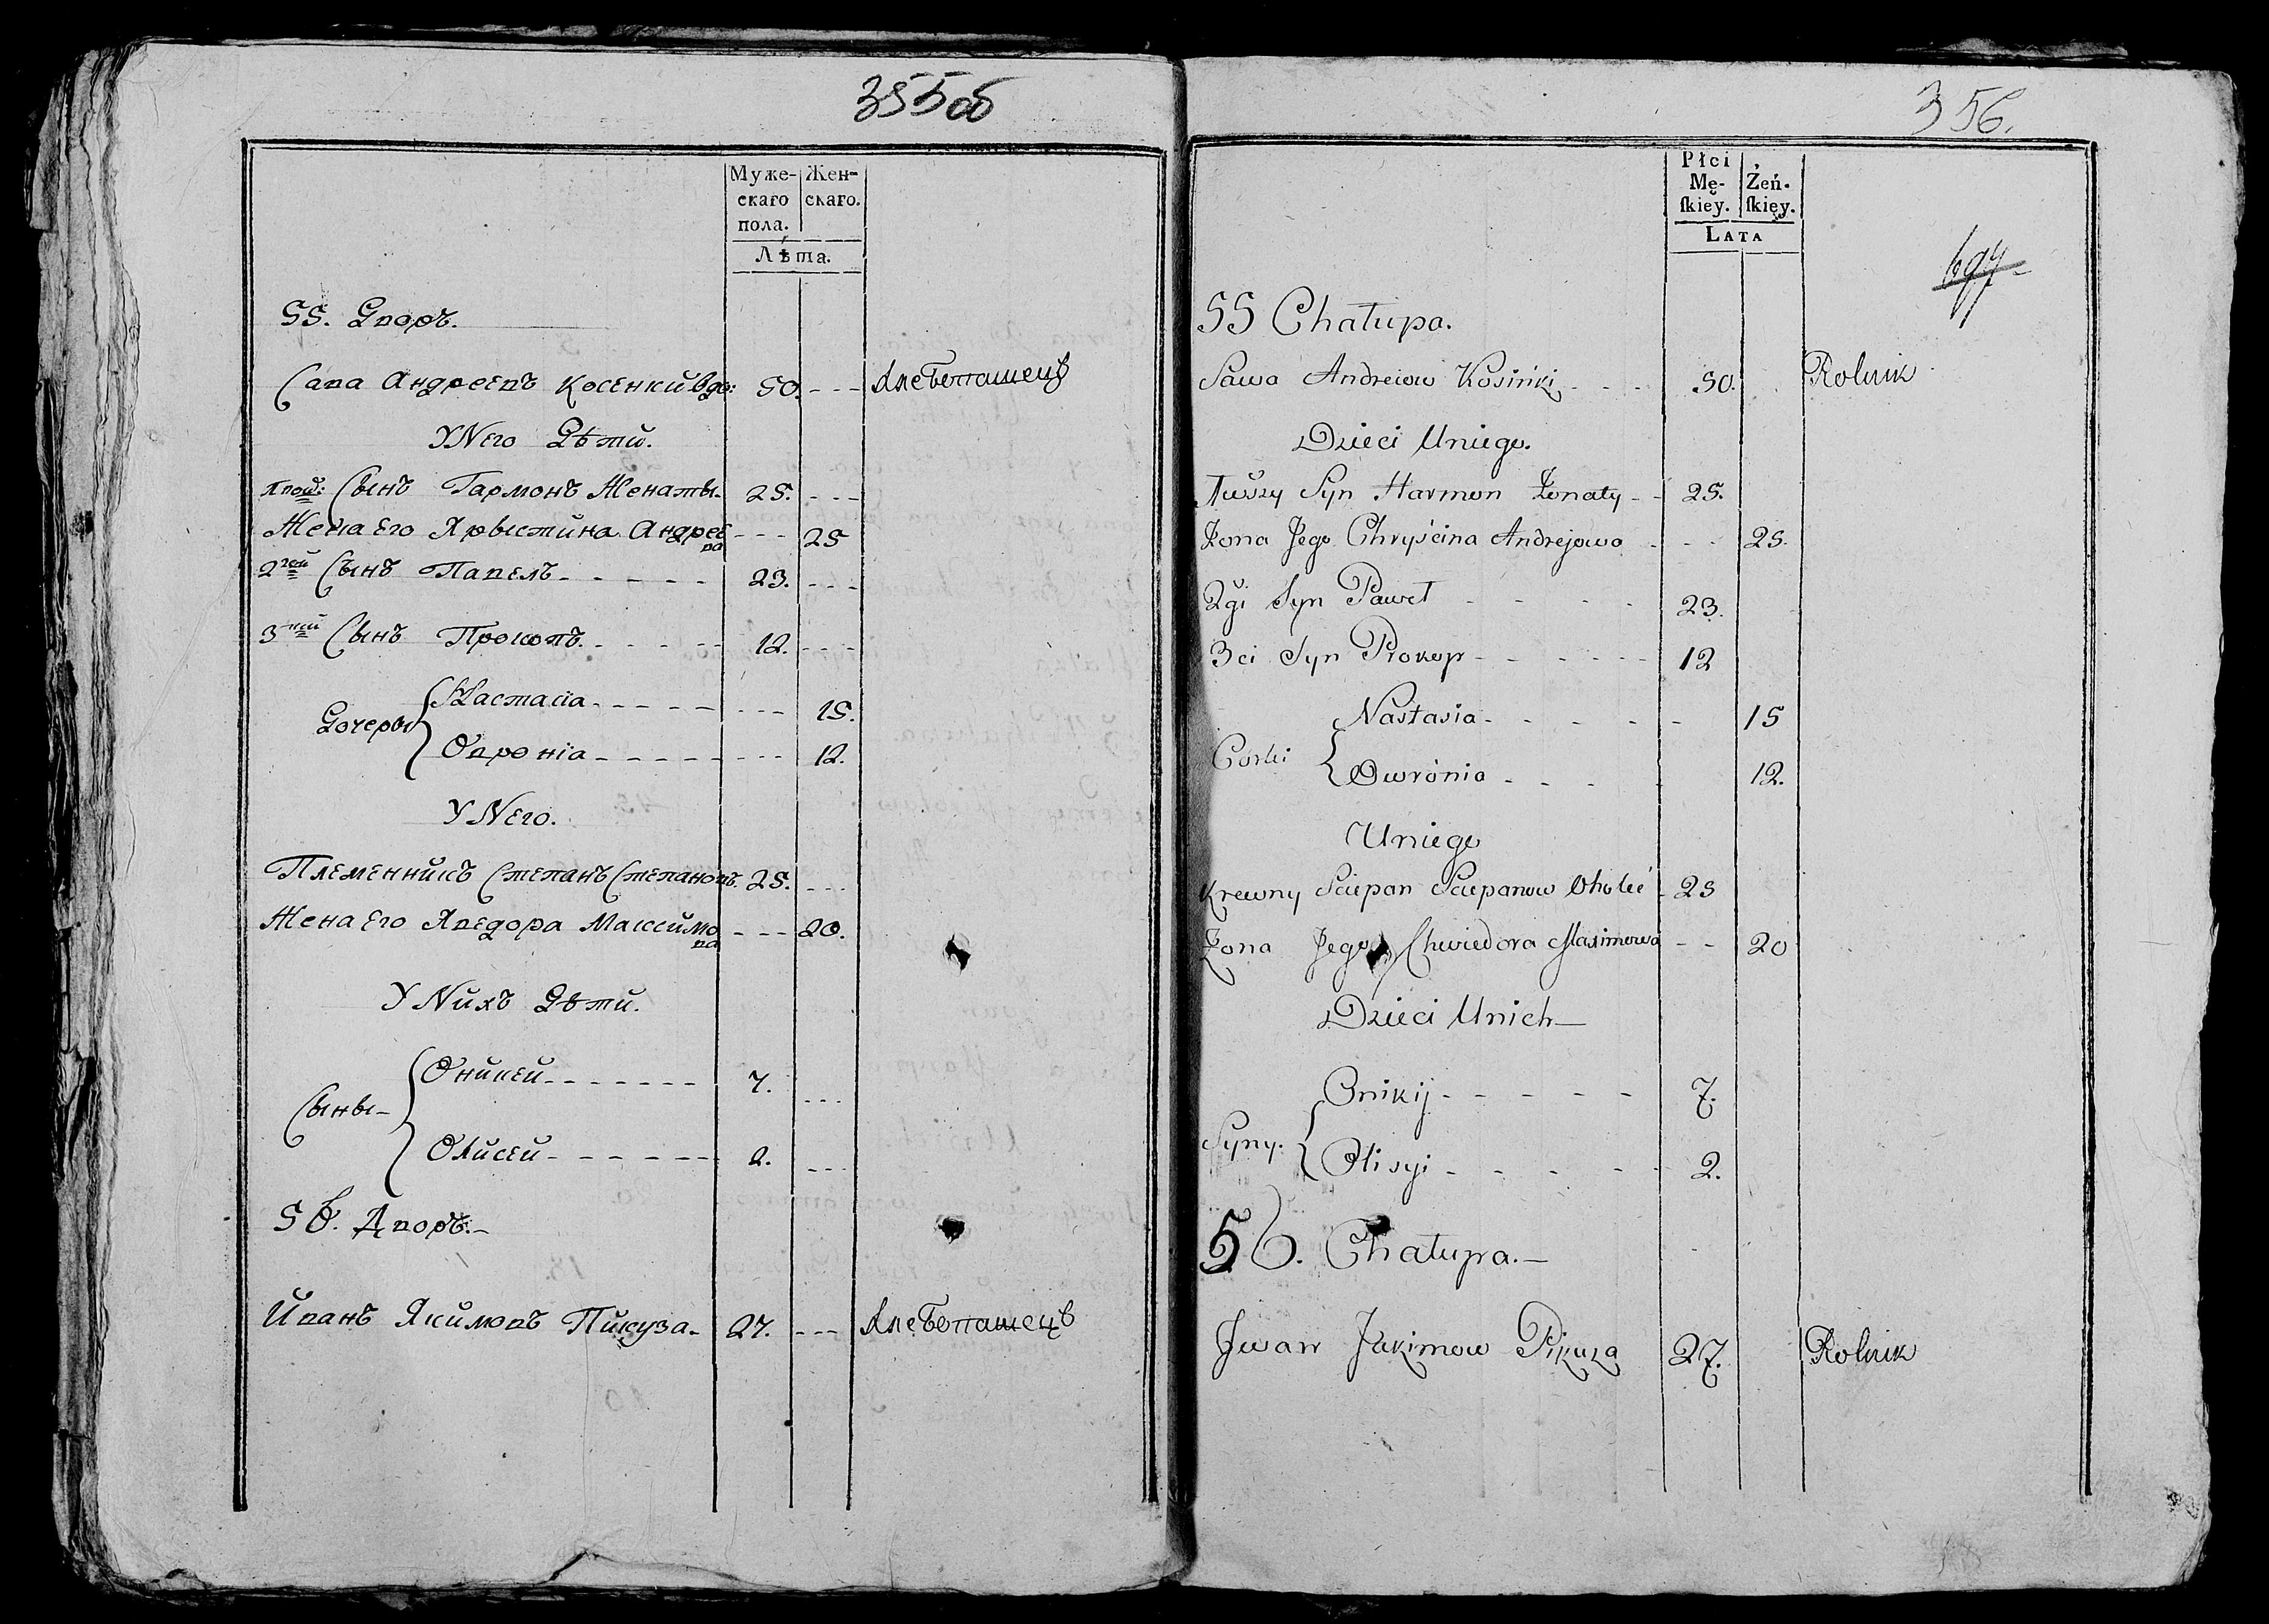 355об
Муже- Жен-
скаго скаго.
пола.
Лѣта.
55. Дворъ.
Сава Андреевъ Косенки вдо: 50. Хлебопашецъ
У Него Дѣти.
Сынъ Гармонъ Женаты 25.
Жена Его Хрыстина Андрее
ва 25
2гой Сынъ Павелъ 23.
3тий Сынъ Прокопъ 12.
Настасiа 15.
Дочеры
Овронiа 12.
У Него.
Племенникъ Степанъ Степановъ 25.
Жена Его Хведора Максимо
ва 20.
У Нихъ Дѣти.
Оникей 7.
Сыны
Олисей 2.
56. Дворъ.
Иванъ Якимовъ Пикуза 27. Хлебопашецъ
356.
Płci
Mę- Żeń-
ſkiey. ſkiey.
LATA
55 Chałupa.
Sawa Andreiow Kosińki 50. Rolnik
Dzieci Uniego.
Syn Harmon Żonaty 25.
Żona Jego Chryścina Andrejowa 25.
2gi Syn Paweł 23.
3ci Syn Prokop 12
Nastasia 15
Córki
Owrónia 12.
Uniego
Krewny Sciepan Sciepanow 25
Żona Jego Chwiedora Masimowa 20
Dzieci Unich
Onikij 7.
Syny.
Olisyi 2.
56. Chałupa.
Jwan Jakimow Pikuza 27. Rolnik